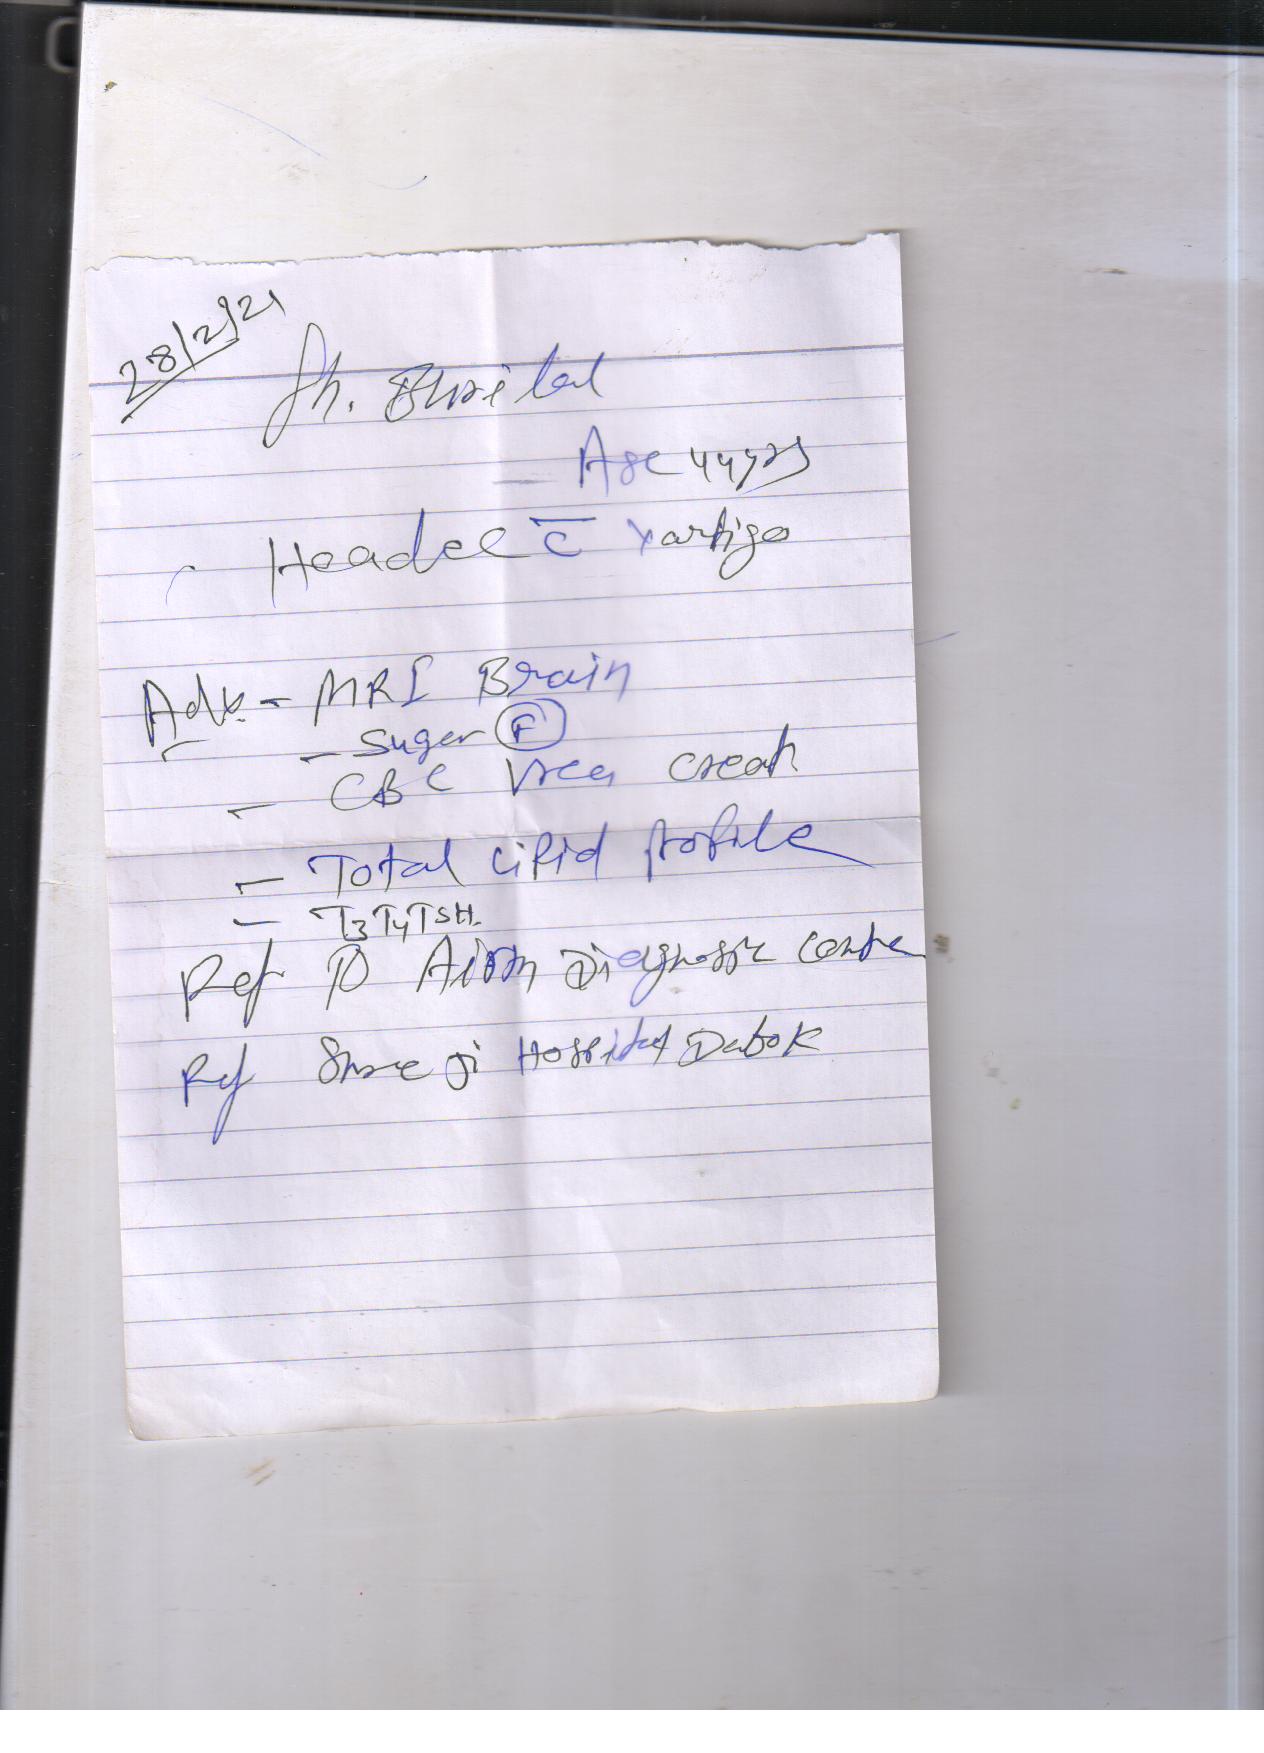 28/2/21
Sh.
Age 44 yrs
c̄ vartigo
Adv. - MRI Brain
- Suger (F)
- CBC Urea creat
- Total Lipid profile
- T3 T4 TSH.
Ref to Diagnostic centre
Ref Shree ji Hospital Dabok